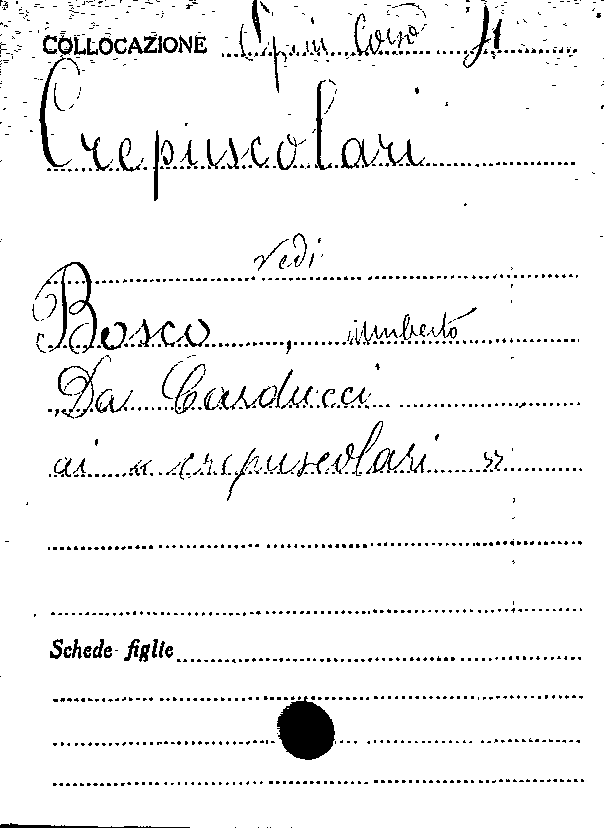 COLLOCAZIONE
Crepuscolari
vedi
Bosco, Umberto
Da Carducci
ai « crepuscolari »
Schede figlie